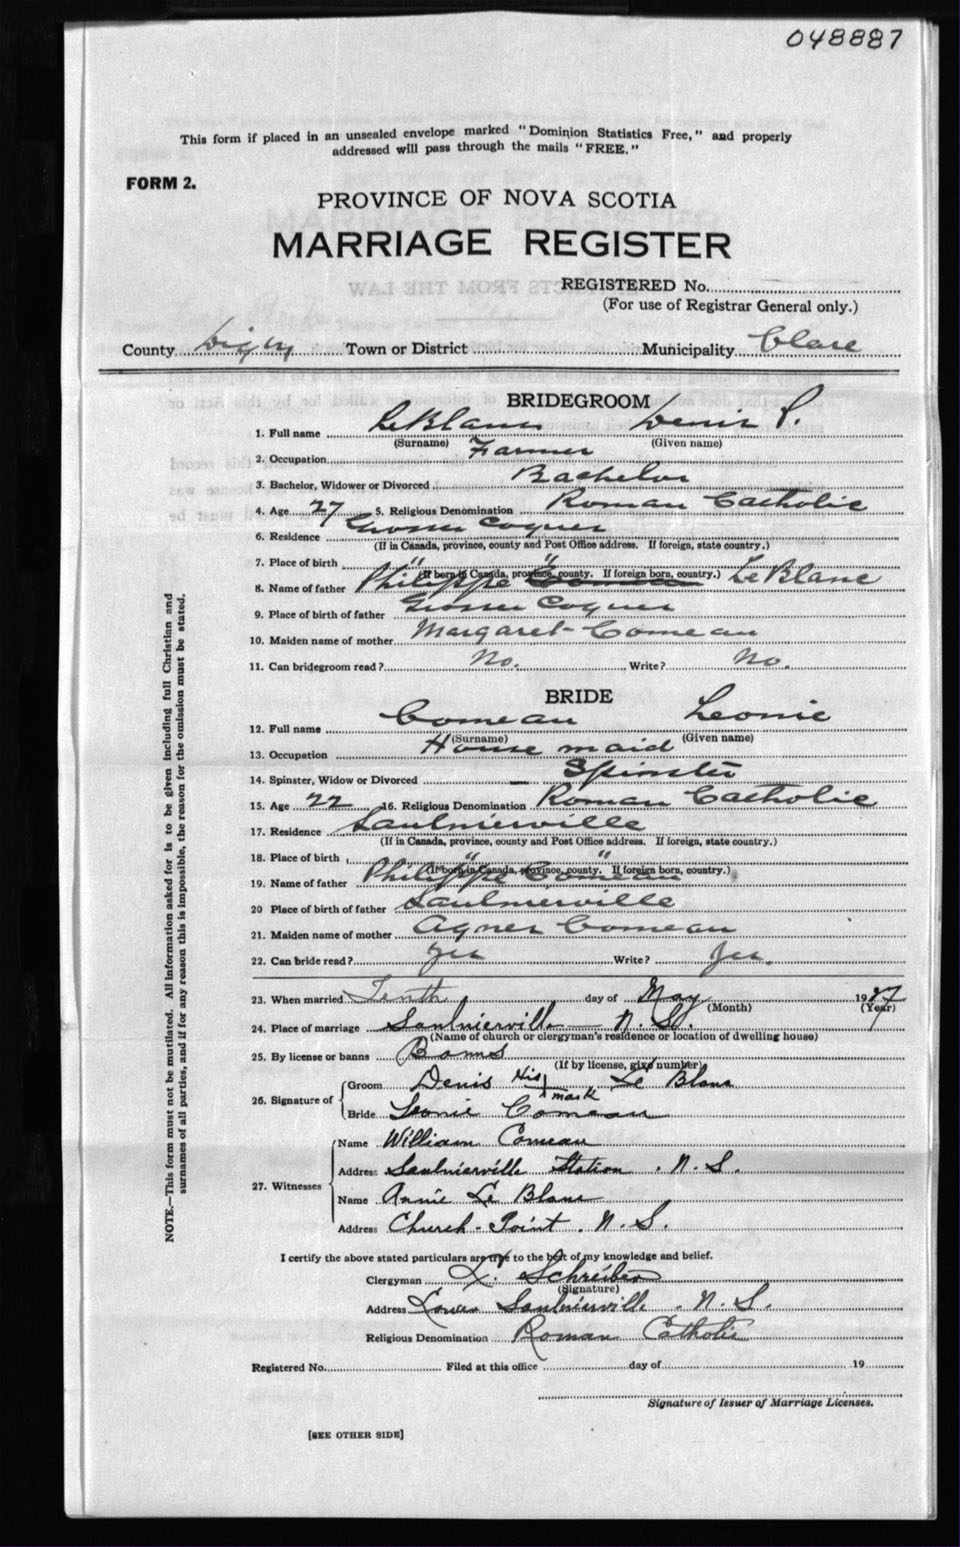 048887
This form if placed in an unsealed envelope marked "Dominion Statistics Free," and properly
addressed will pass through the mails "FREE."
FORM 2.
PROVINCE OF NOVA SCOTIA
MARRIAGE REGISTER
REGISTERED No.
(For use of Registrar General only.)
County Digby Town or District Municipality Clare
BRIDEGROOM
1. Full name LeBlanc Denis P.
(Surname) (Given name)
2. Occupation Farmer
3. Bachelor, Widower or Divorced Bachelor
4. Age 27 5. Religious Denomination Roman Catholic
6. Residence Grosses Coques
(If in Canada, province, county and Post Office address. If foreign, state country.)
7. Place of birth " "
(If born in Canada, province, county. If foreign born, country.)
8. Name of father Philippe LeBlanc
9. Place of birth of father Grosses Coques
10. Maiden name of mother Margaret Comeau
11. Can bridegroom read? No. Write? No.
BRIDE
12. Full name Comeau Leonie
(Surname) (Given name)
13. Occupation House maid
14. Spinster, Widow or Divorced Spinster
15. Age 22 16. Religious Denomination Roman Catholic
17. Residence Saulnierville
(If in Canada, province, county and Post Office address. If foreign, state country.)
18. Place of birth " "
(If born in Canada, province, county. If foreign born, country.)
19. Name of father Philippe Comeau
20 Place of birth of father Saulnierville
21. Maiden name of mother Agnes Comeau
22. Can bride read? Yes Write? Yes.
23. When married Tenth day of May 1927
(Month) (Year)
24. Place of marriage Saulnierville N. S.
(Name of church or clergyman's residence or location of dwelling house)
25. By license or banns Banns
(If by license, give number)
26. Signature of Groom Denis His mark Le Blanc
Bride Leonie Comeau
27. Witnesses Name William Comeau
Address Saulnierville Station. N.S.
Name Annie Le Blanc
Address Church-Point. N.S.
I certify the above stated particulars are true to the best of my knowledge and belief.
Clergyman Schreiber
(Signature)
Address Lower Saulnierville. N.S.
Religious Denomination Roman Catholic
Registered No. Filed at this office day of 19
Signature of Issuer of Marriage Licenses.
[SEE OTHER SIDE]
NOTE.—This form must not be mutilated. All information asked for is to be given including full Christian and
surnames of all parties, and if for any reason this is impossible, the reason for the omission must be stated.